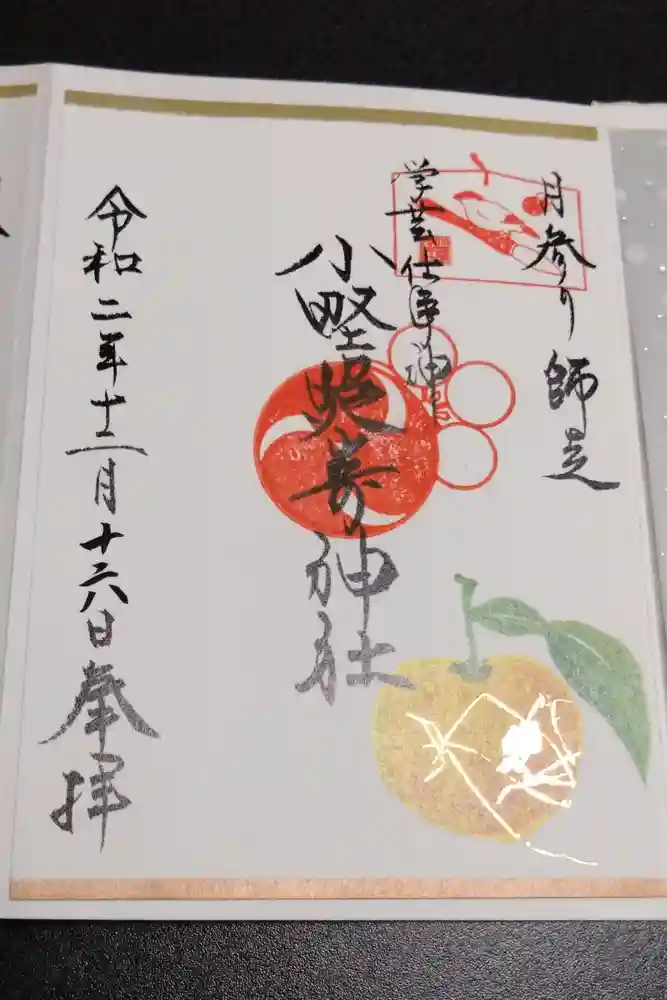 月参り 師走
学芸仕事神
小野照崎神社
令和二年十二月十六日 奉拝